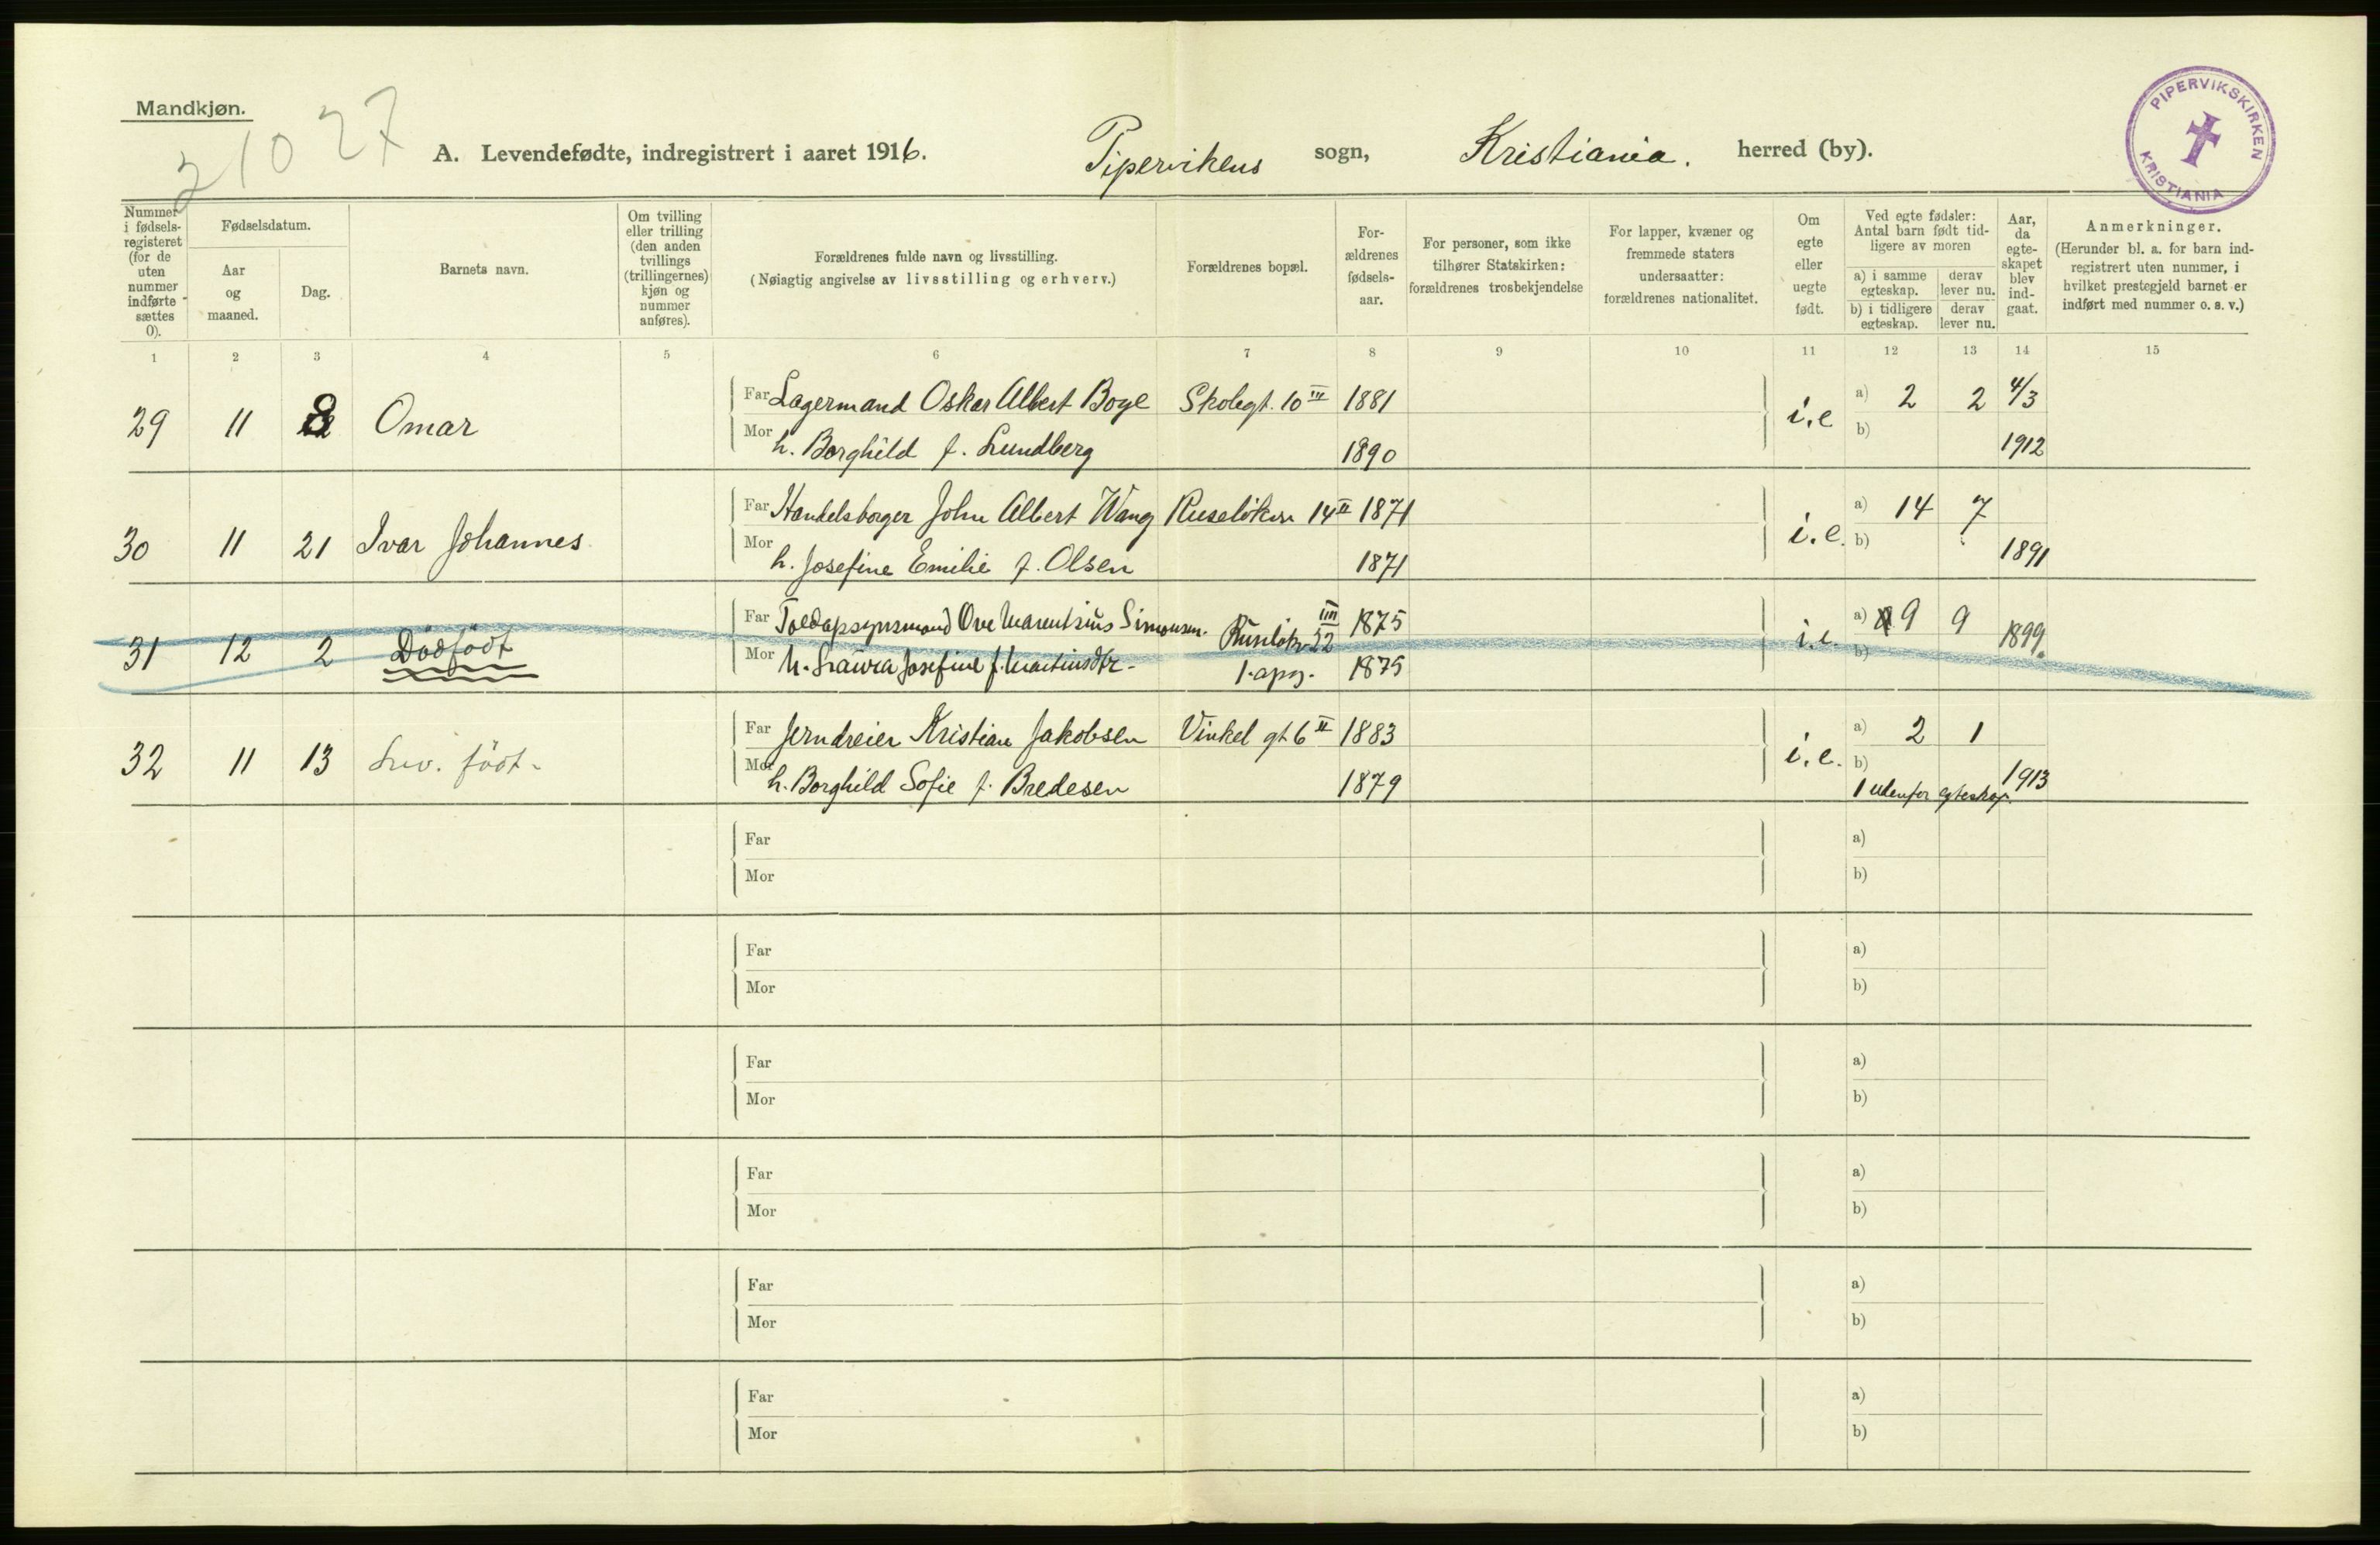 Mandkjøn.
21027
A. Levendefødte, indregistrert i aaret 1916.
Pipervikens sogn, Kristiania. herred (by).
PIPERVIKSKIRKEN
KRISTIANIA
Nummer i fødsels-registeret (for de uten nummer indførte sættes 0).
Fødselsdatum.
Aar og maaned.
Dag.
Barnets navn.
Om tvilling eller trilling (den anden tvillings (trillingernes) kjøn og nummer anføres).
Forældrenes fulde navn og livsstilling.
(Nøiagtig angivelse av livsstilling og erhverv.)
Forældrenes bopæl.
For-ældrenes fødsels-aar.
For personer, som ikke tilhører Statskirken: forældrenes trosbekjendelse
For lapper, kvæner og fremmede staters undersaatter: forældrenes nationalitet.
Om egte eller uegte født.
Ved egte fødsler: Antal barn født tid-ligere av moren
a) i samme egteskap.
derav lever nu.
b) i tidligere egteskap.
derav lever nu.
Aar, da egte-skapet blev ind-gaat.
Anmerkninger.
(Herunder bl. a. for barn ind-registrert uten nummer, i hvilket prestegjeld barnet er indført med nummer o. s. v.)
1 2 3 4 5 6 7 8 9 10 11 12 13 14 15
29 11 8 Omar
Far Lagermand Oskar Albert Boye Skolegt. 10 III 1881
i.e a) 2 2 4/3
Mor h. Borghild f. Lundberg 1890
b) 1912
30 11 21 Ivar Johannes
Far Handelsborger John Albert Wang Ruseløkvn 14 II 1871
i.e. a) 14 7
Mor h. Josefine Emilie f. Olsen 1871
b) 1891
31 12 2 Dödfödt
Far Toldopsynsmand Ove Marentsius Simonsen. Ruseløkv 22 IIII 1875
i.e. a) 9 9 1899.
Mor h. Laura Josefine f. Martinsdtr- 1. apg. 1875
b)
32 11 13 Lev. födt-
Far Jerndreier Kristian Jakobsen Vinkel gt 6 II 1883
i.e. a) 2 1
Mor h. Borghild Sofie f. Bredesen 1879
b) 1913
1 udenfor egteskap.
Far a)
Mor b)
Far a)
Mor b)
Far a)
Mor b)
Far a)
Mor b)
Far a)
Mor b)
Far a)
Mor b)